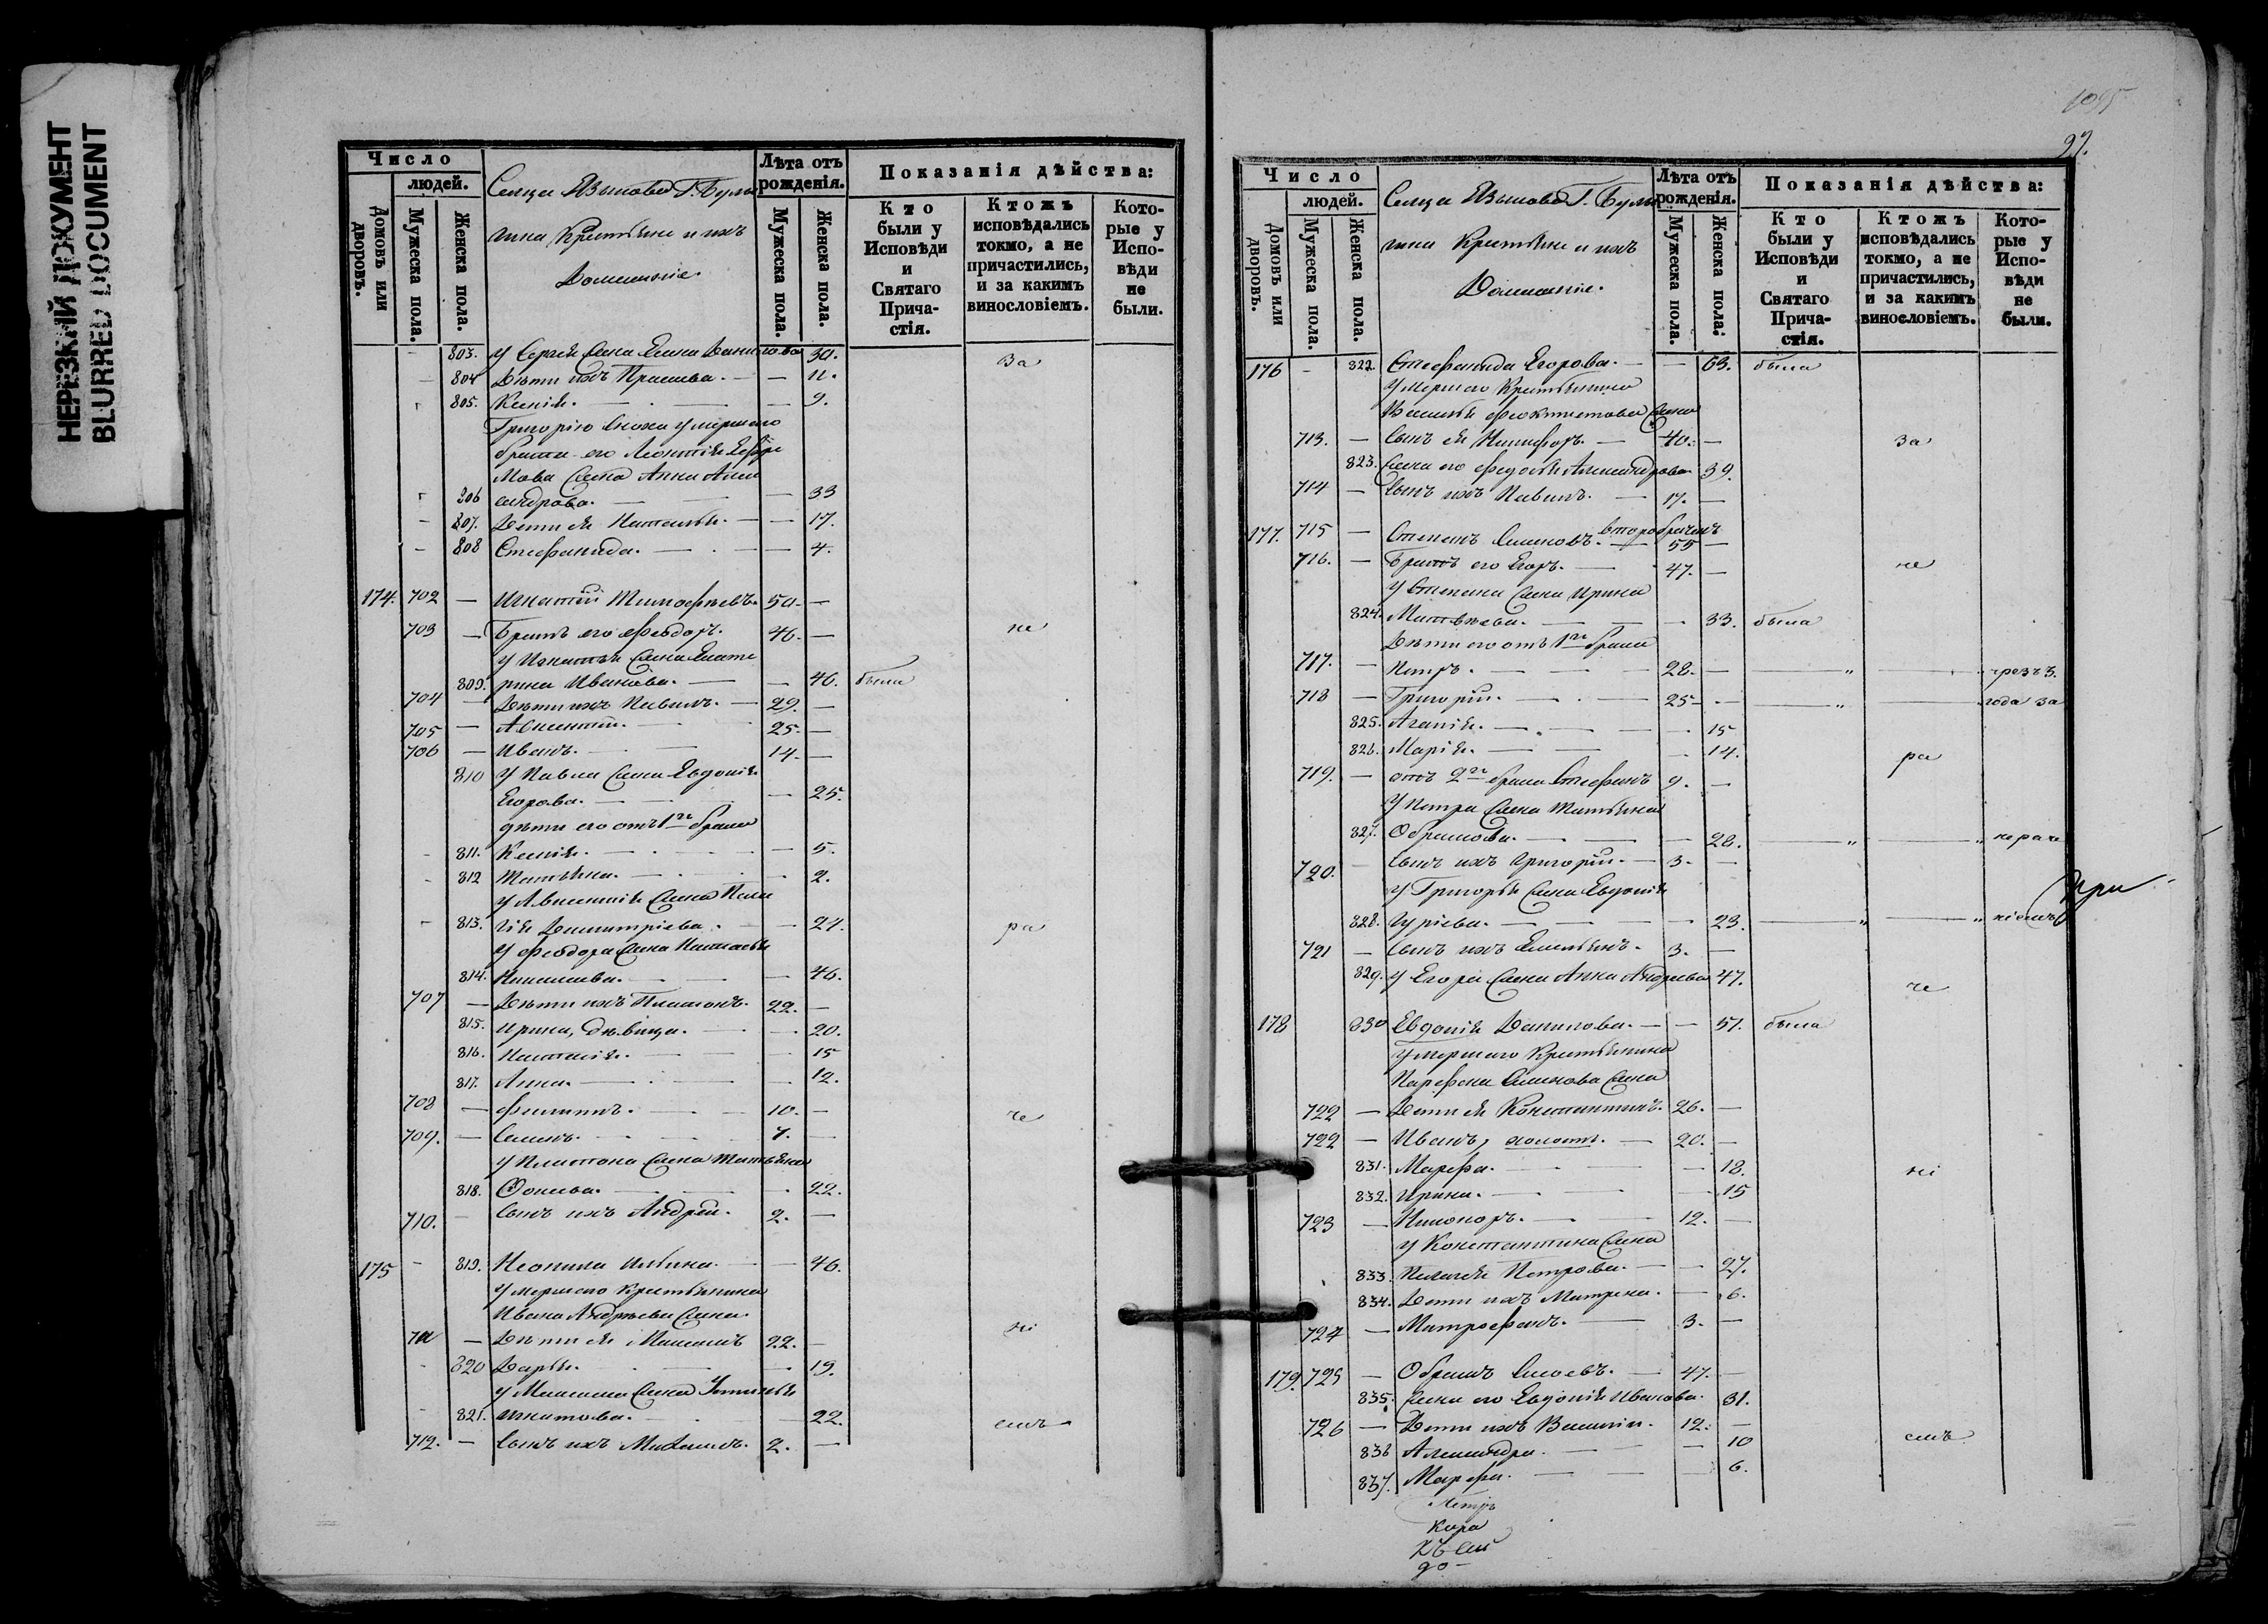 НЕРЕЗКИЙ ДОКУМЕНТ
BLURRED DOCUMENT
Число
людей.
Домовъ или дворовъ.
Мужеска пола.
Женска пола.
Лѣта отъ рожденія.
Мужеска пола.
Женска пола.
Показанія дѣйства:
Кто были у Исповѣди и Святаго Прича-стія.
Ктожъ исповѣдались токмо, а не причастились, и за какимъ винословіемъ.
Кото-рые у Испо-вѣди не были.
Крестьяне и ихъ
Домашніе.
803. У Сергѣя жена Данилова 30. За
804 Дѣти ихъ — — 11.
805. Ксенія. — — 9.
Григорію умершаго
брата его Леонтія Ефре
мова жена Анна Алек
806 сандрова. — — 33
807. Дети ея Наталья. — — 17.
808 Стефанида. — — 4.
174. 702 — Игнатій Тимофѣевъ. 50 —
703 — Братъ его Феодоръ. 46. — не
У Игнатья жена Екате
809. рина Иванова. — — 46. была
704 — Дѣти ихъ Павелъ. — 29. —
705 — Авксентій. — 25. —
706 — Иванъ. — 14. —
810 У Павла жена Евдокія
Егорова. — — 25.
дѣти его отъ 1го брака
811. Ксенія. — — 5.
812 Татьяна. — — 2.
У Авксентія жена Пела
813. гія Димитріева. — 24. ра
У Феодора жена Наталья
814. — 46.
707 — Дѣти ихъ Платонъ. 22. —
815. Ирина, дѣвица. — — 20.
816. — — 15
817. Анна. — — 12.
708 — Филиппъ. — 10. — че
709. — Семенъ. — 7. —
У Платона жена Татьяна
818. — 22.
710. — Сынъ ихъ Андрей. 2. —
175 — 819. Неонила Ильина. — — 46.
умершаго крестьянина
Ивана Андреева жена
711 — Дѣти ея Максимъ 22. — ні
820 Дарья. — — 19.
У Максима жена
821. — 22. емъ
712. — Сынъ ихъ 2. —
1095
97.
Число
людей.
Домовъ или дворовъ.
Мужеска пола.
Женска пола.
Лѣта отъ рожденія.
Мужеска пола.
Женска пола.
Показанія дѣйства:
Кто были у Исповѣди и Святаго Прича-стія.
Ктожъ исповѣдались токмо, а не причастились, и за какимъ винословіемъ.
Кото-рые у Испо-вѣди не были.
Крестьяне и ихъ
Домашніе.
176 — 822 Стефанида Егорова. — — 63. была
умершаго Крестьянина
Василья Феоктистова жена
713. — Сынъ ея Никифоръ. — 40. — за
823. Жена его Федосья Александрова 39.
714 — Сынъ ихъ Павелъ. — 17. —
177. 715 — Степанъ Семеновъ. второбрачный 55 —
716. — Братъ его Егоръ. — 47. — не
У Степана жена Ирина
824. Матвѣева. — — 33. была
Дѣти его отъ 1го брака
717. — Петръ. — 28. — чрезъ 3.
718 — Григорій. — 25 — года за
825. Агапія. — — 15
826. Марія. — — 14. ра
719. — отъ 2го брака Стефанъ 9. —
У Петра жена Татьяна
827. Обрамова. — — 28. нераче
720. — Сынъ ихъ Григорій. — 3. —
У Григорья жена Евдокія
828. Гурьева. — — 23. ніемъ
721 — Сынъ ихъ Емельянъ. 3. —
829. У Егора жена Анна Андреева 47. че
178 830 Евдокія Данилова. — — 51. была
умершаго Крестьянина
Парфена Семенова жена
722 — Дети ея Константинъ. 26. —
722 — Иванъ, холостъ. — 20. —
831. Марфа. — — 18. ні
832. Ирина. — — 15
723 — Никоноръ. — 12. —
У Константина жена
833. Пелагея Петрова. — — 27.
834. Дети ихъ Матрена. — 6.
724 — Митрофанъ. — 3. —
179. 725 — Обрамъ 47. —
835. Жена его Евдокія Иванова. 31.
726 — Дети ихъ Василій. 12. —
836 Александра. — — 10 емъ
837. Марфа. — — 6.